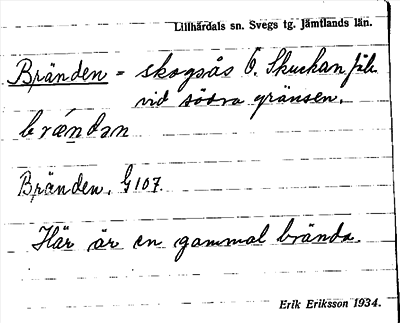 Lillhärdals sn. Svegs tg. Jämtlands län.
Bränden = skogsås Ö. Skuckan
vid södra gränsen.
brǽndan
Bränden. G 107.
Här är en gammal brända.
Erik Eriksson 1934.